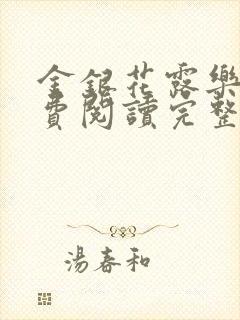 金銀花露樂
費閱讀完整
湯春和